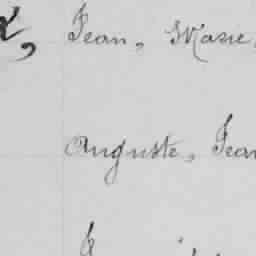 Jean, Marie,
Auguste, Jean